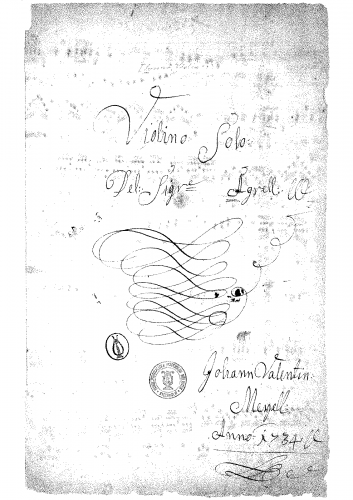 Violino Solo.
Del Sigre Agrell.
Johann Valentin
Anno: 1734